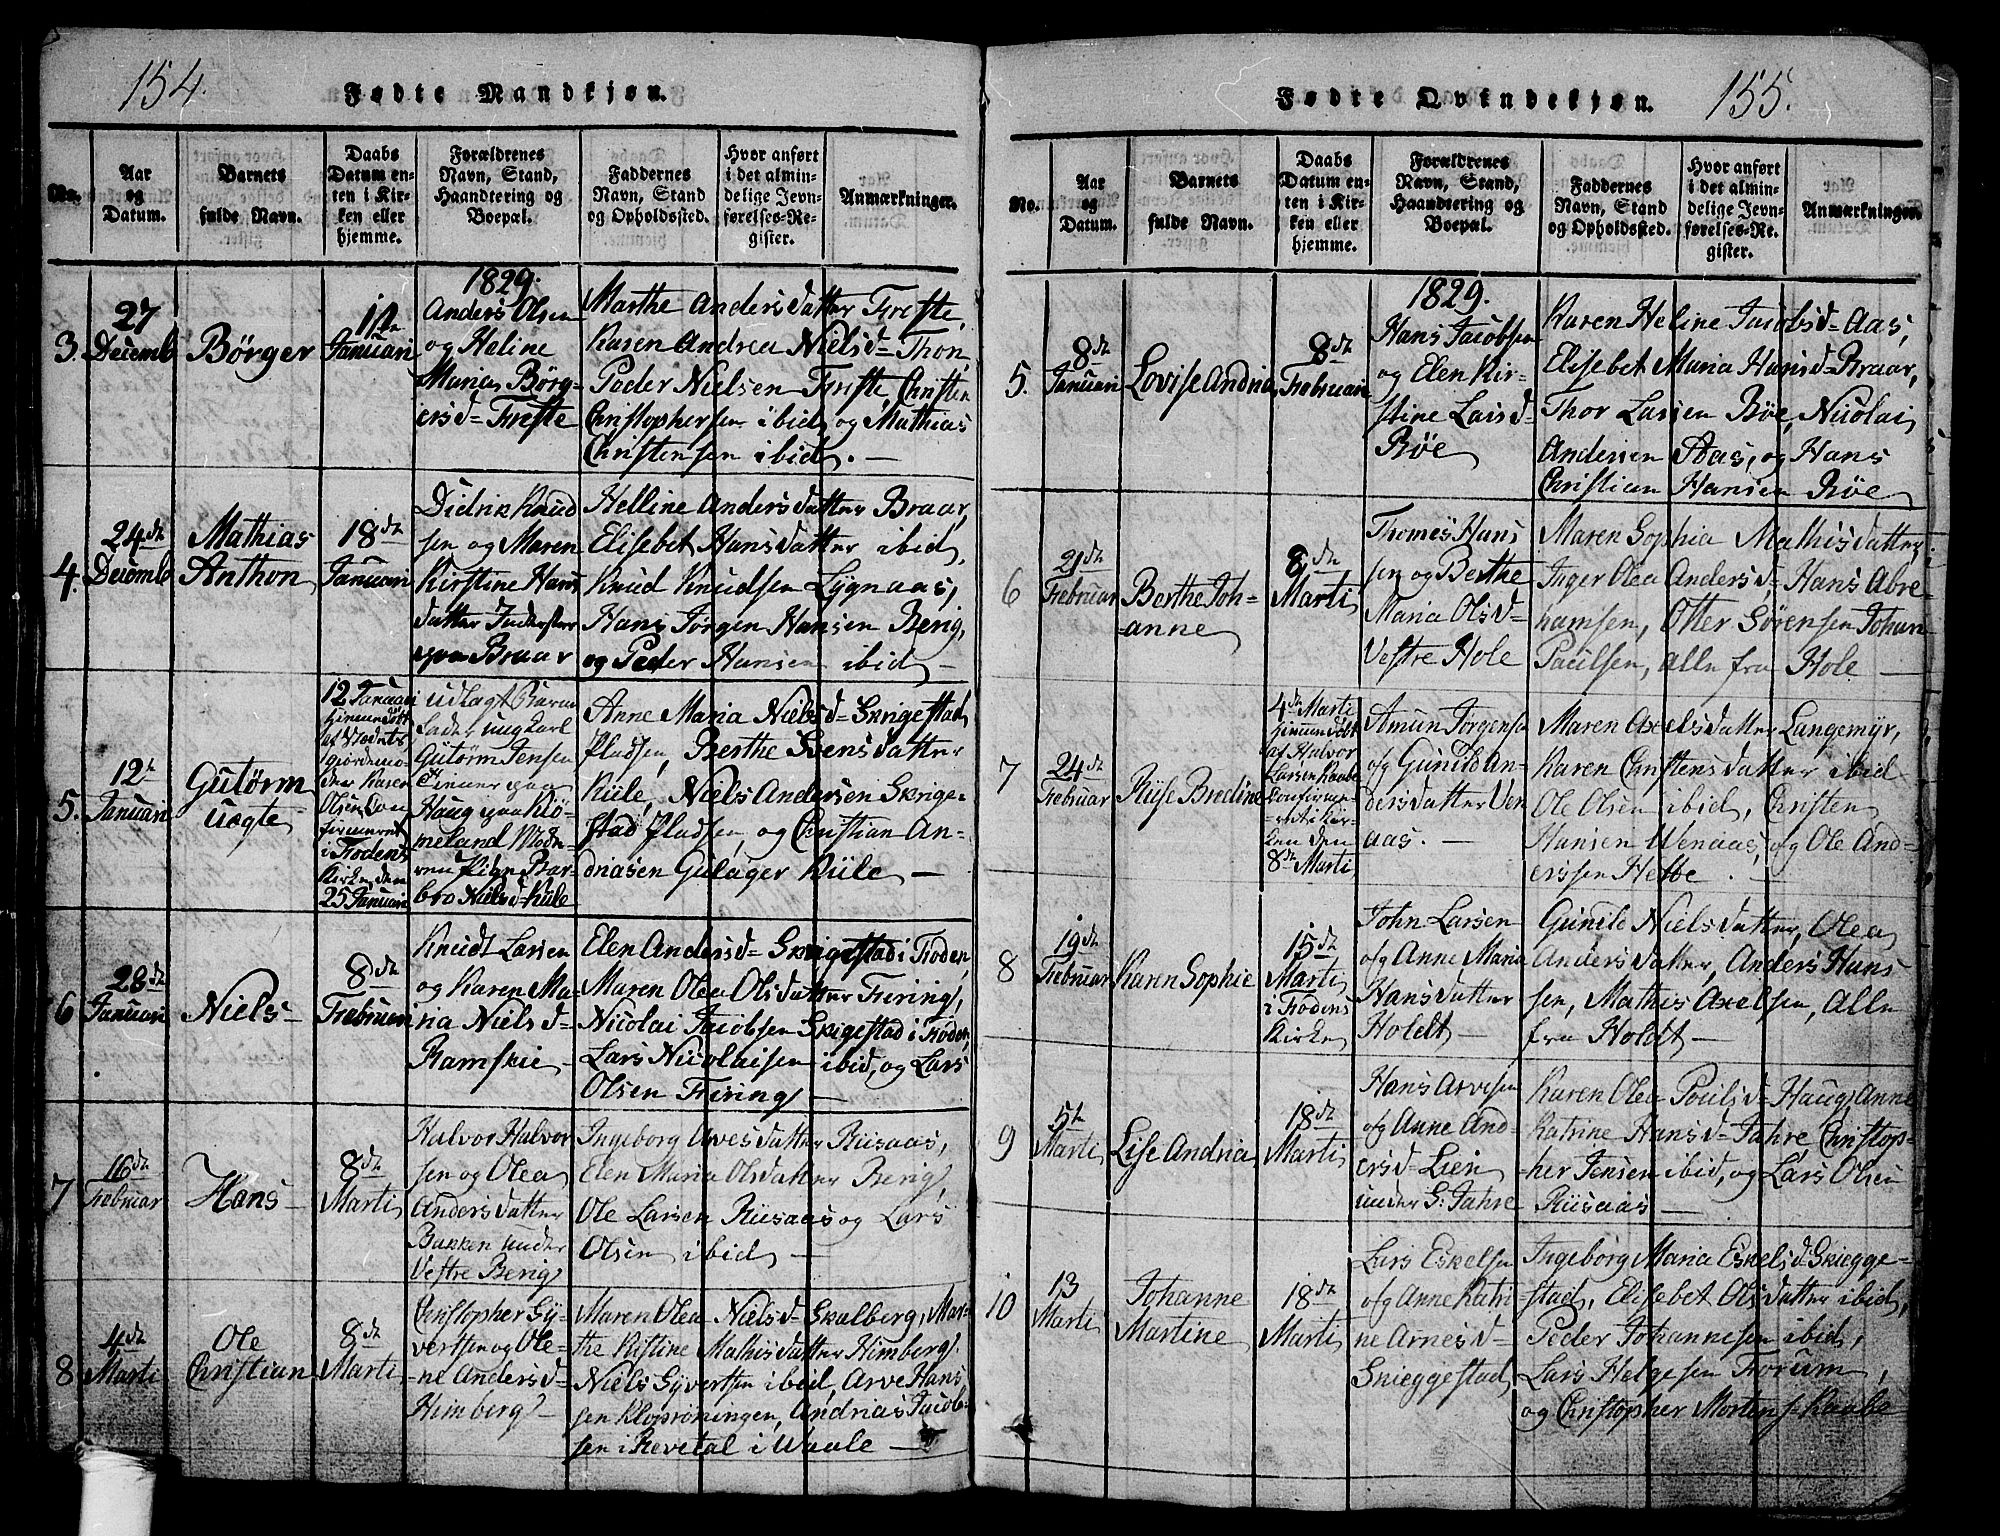 154.
Fødte Mandkjøn.
No.
Aar
og
Datum.
Barnets
fulde Navn.
Daabs
Datum en-
ten i Kir-
ken eller
hjemme.
Forældrenes
Navn, Stand,
Haandtering og
Boepæl.
Faddernes
Navn, Stand
og Opholdssted.
Hvor anført
i det almin-
delige Jevn-
førelses-Re-
gister.
Anmærkninger.
3.
27
Decemb
Börger
Januari
1829.
Anders Olsen
og Heline
Maria Börg-
ersd= Freste
Marthe Andersdatter Freste,
Karen Andrea Nielsd= Thon,
Peder Nielsen Freste, Christen
Christophersen ibid, og Mathias
Christensen ibid. —
4.
24de
Decemb
Mathias
Anthon
18de
Januari
Didrik Knud
sen og Maren
Kirstine Hans
datter Inderster
paa Braar
Helline Andersdatter Braar,
Elisebet Hansdatter ibid,
Knud Knudsen Lygnaas,
Hans Jørgen Hansen Berig,
og Peder Hansen ibid —
5.
12te
Januari
Gutørm
uegte
12 Januari
hjemmedøbt
i Frodens
Kirke, den
25 Januari
udlagt Barne
fader ungkarl
Gutørm Jensen
Haug paa Röm
meland Mode
ren Pigen Bar
bro Nielsd= Kule
Anne Maria Nielsd= Skrigestad
Pladsen, Berthe Svensdatter
Kule, Niels Andersen Skrige-
stad Pladsen, og Christian An-
driasen Gulager Kule —
6
28de
Januari
Niels —
8de
Februari
Knudt Larsen
og Karen Ma-
ria Nielsd=
Ramskie —
Elen Andersd= Skrigestad i Froden,
Maren Olea Olsdatter Friring,
Nicolai Jacobsen Skigestad i Froden
Lars Nicolaisen ibid, og Lars
Olsen Friring —
7
16de
Februar
Hans —
8de
Marti
Halvor Halvor
sen og Olea
Andersdatter
Bakken under
Vestre Berig
Ingeborg Arvesdatter Rusaas,
Elen Maria Olsdatter Berig,
Ole Larsen Rusaas og Lars
Olsen ibid —
8
4de
Marti
Ole
Christian
8de
Marti
Christopher Gy-
vertsen og Ole-
ne Andersd=
Himberg —
Maren Olea Nielsd= Skalberg, Mar-
the Kistine Mathisdatter Himberg
Niels Gyvertsen ibid, Arve Hans
sen Klopröningen, Andrias Jacob-
sen i Revetal i Waale —
155.
Fødte Qvindekjøn.
No.
Aar
og
Datum.
Barnets
fulde Navn.
Daabs
Datum en-
ten i Kir-
ken eller
hjemme.
Forældrenes
Navn, Stand,
Haandtering og
Boepæl.
Faddernes
Navn, Stand
og Opholdssted.
Hvor anført
i det almin-
delige Jevn-
førelses-Re-
gister.
Anmærkninger.
5.
8de
Januari
Lovise Andria
8de
Februari
1829.
Hans Jacobsen
og Elen Kir-
stine Larsd=
Böe
Karen Heline Jacobsd= Aas,
Elisebet Maria Hansd= Braar,
Thor Larsen Böe, Nicolai
Andersen Aas, og Hans
Christian Hansen Böe
6
21de
Februar
Berthe Joh-
=anne
8de
Marti
Thomes Hans
sen og Berthe
Maria Olsd=
Vestre Hole
Maren Sophia Mathisdatter
Inger Olea Andersd=, Hans Abre-
hamsen, Otter Sörensen Johan
Paulsen, alle fra Hole —
7
24de
Februar
Ruse Bredine
4de Marti
hjemmedöbt
af Halvor
Larsen Raabe
Confirme-
ret i Kir-
ken den
8de Marti
Amun Jorgensen
og Gunild An-
dersdatter Ven
aas. —
Maren Axelsdatter Langemyr,
Karen Christensdatter ibid
Ole Olsen ibid, Christen
Hansen Wenaas, og Ole And-
erssen Hesbe. —
8
19de
Februar
Karen Sophie
15de
Marti
i Frodens
Kirke
John Larsen
og Anne Maria
Hansdatter
Holdt —
Gunild Nielsdatter, Olea
Andersdatter, Anders Hans
sen, Mathis Axelsen, Alle
fra Holdt —
9
5te
Marti
Lise Andria
18de
Marti
Hans Arvesen
og Anne And-
ersd= Lien
under S: Jahre
Karen Olea Poulsd= Haug, Anne
Katrine Hansd= Jahre, Christop-
her Jensen ibid, og Lars Olsen
Rusaas —
10
13
Marti
Johanne
Martine
18de
Marti
Lars Eskelsen
og Anne Katri-
ne Arnesd=
Skieggestad
Ingeborg Maria Eskelsd= Skiegge-
stad, Elisebet Olsdatter ibid,
Peder Johannesen ibid,
Lars Helgesen Frorum,
og Christopher Mortens: Raabe